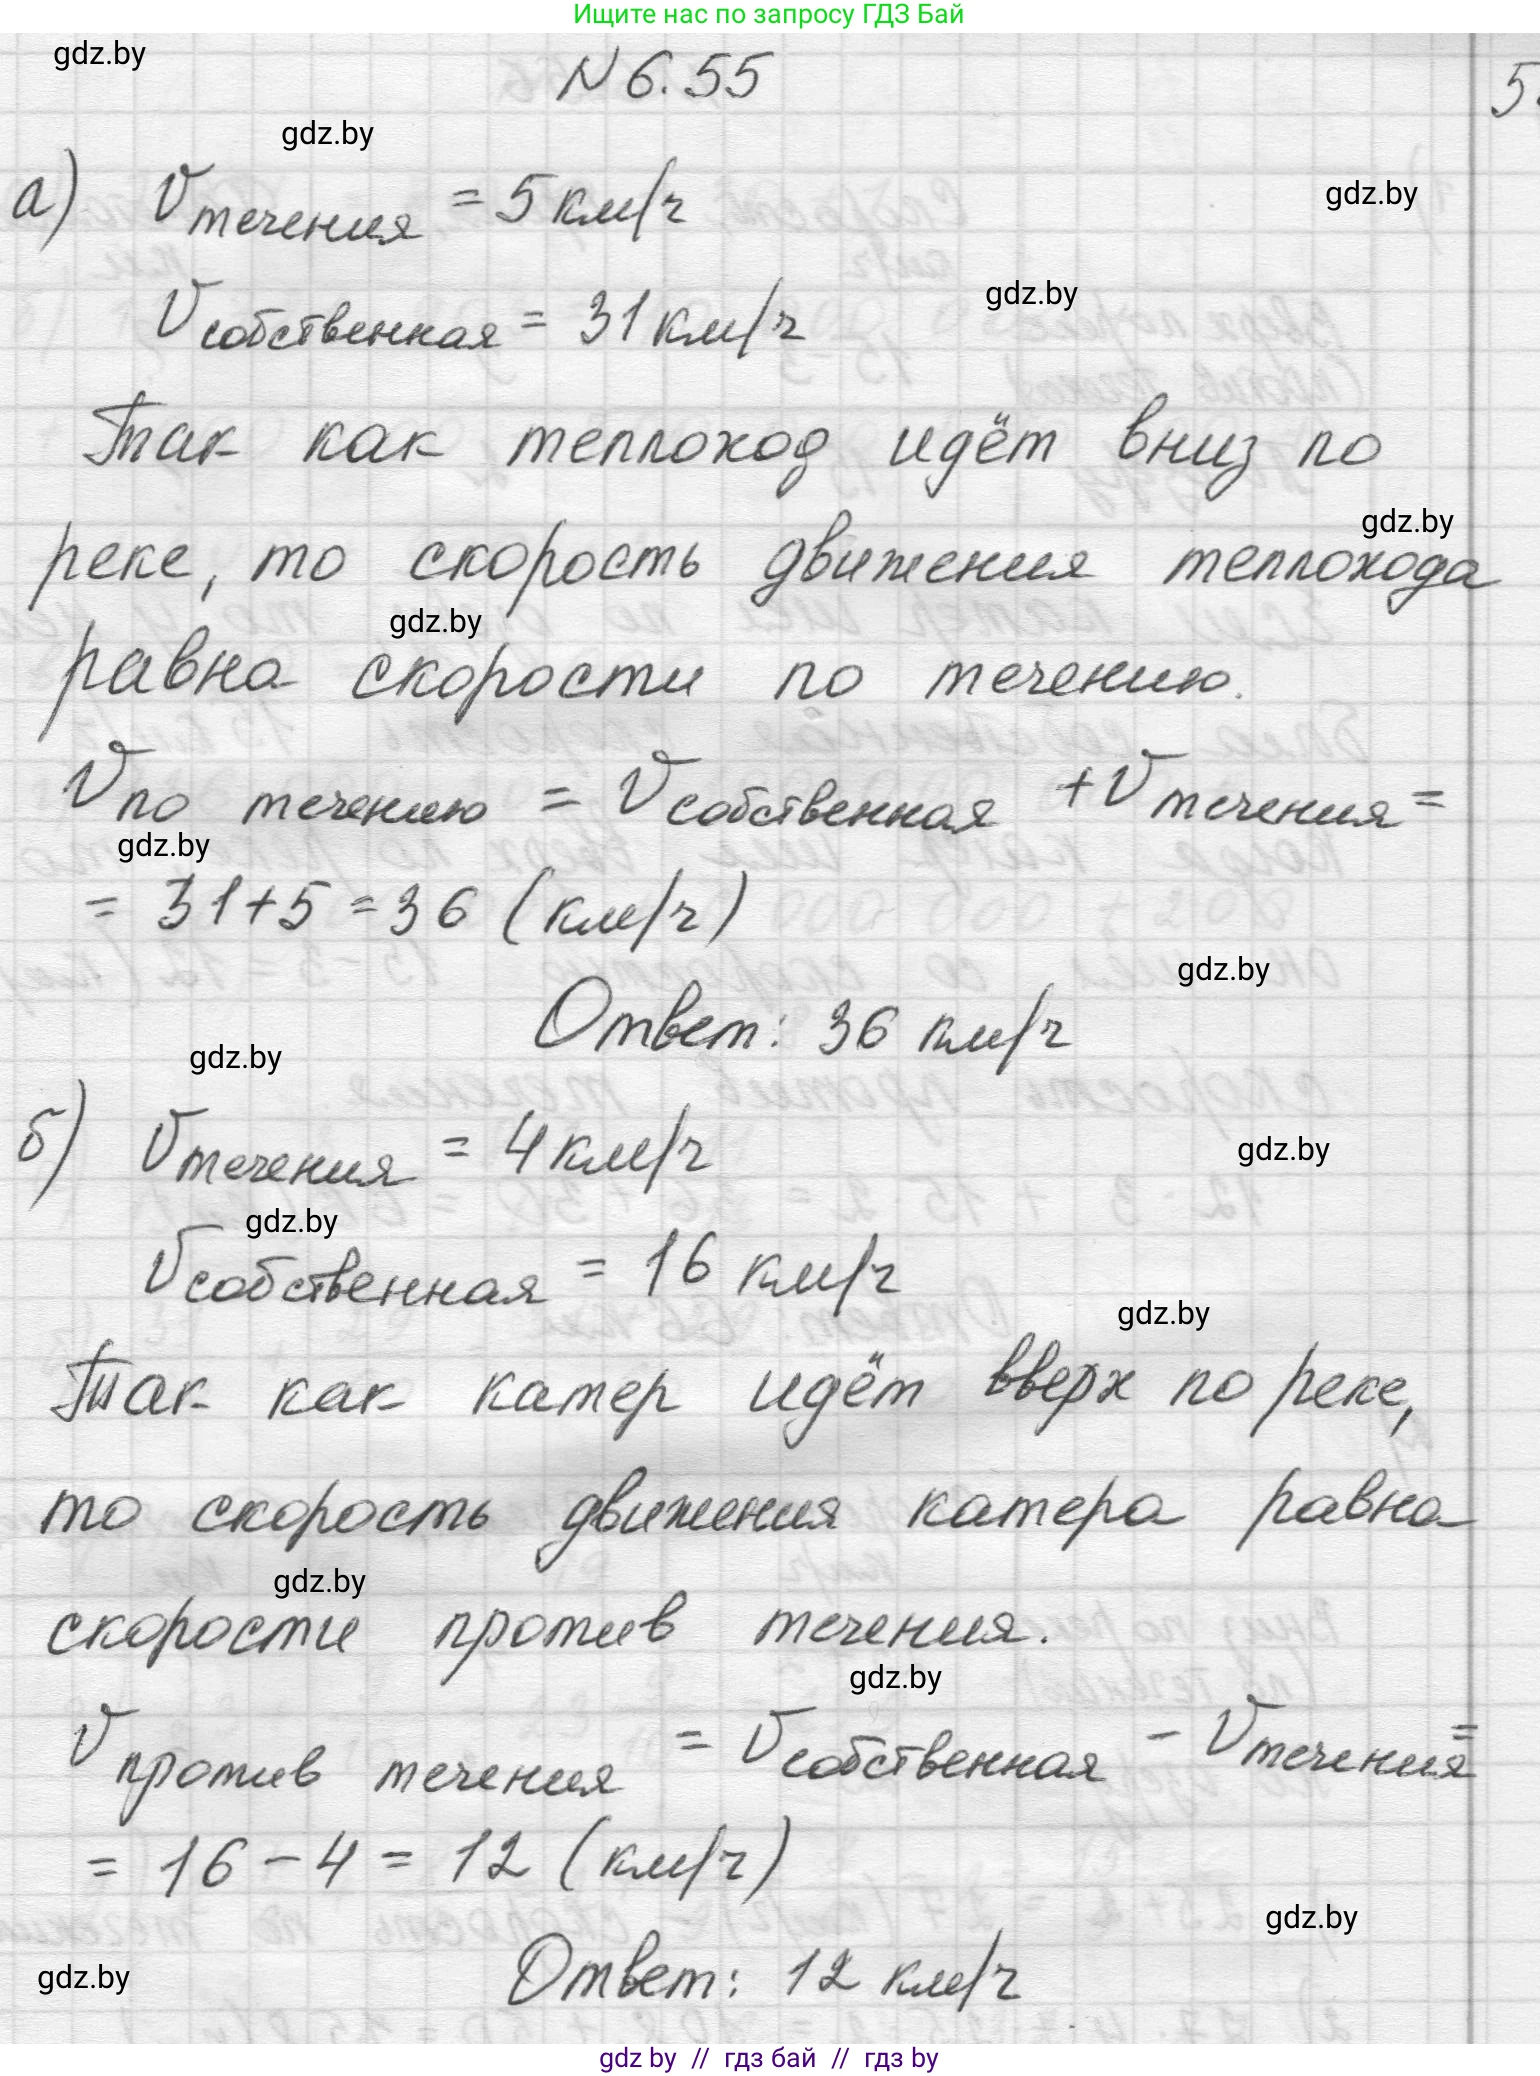 Ищите нас по запросу ГДЗ Бай
gdz.by
N 6.55
5
gdz.by
а) Vтечения = 5 км/ч
gdz.by
Vсобственная = 31 км/ч
gdz.by
Так как теплоход идёт вниз по
gdz.by
реке, то скорость движения теплохода
gdz.by
равна скорости по течению.
Vпо течению = Vсобственная + Vтечения =
gdz.by
= 31+5 = 36 (км/ч)
gdz.by
Ответ: 36 км/ч
gdz.by
б) Vтечения = 4 км/ч
gdz.by
gdz.by
Vсобственная = 16 км/ч
gdz.by
Так как катер идёт вверх по реке,
то скорость движения катера равна
gdz.by
скорости против течения.
gdz.by
Vпротив течения = Vсобственная - Vтечения =
= 16 - 4 = 12 (км/ч)
gdz.by
Ответ: 12 км/ч
gdz.by
gdz by // гдз бай // гдз by